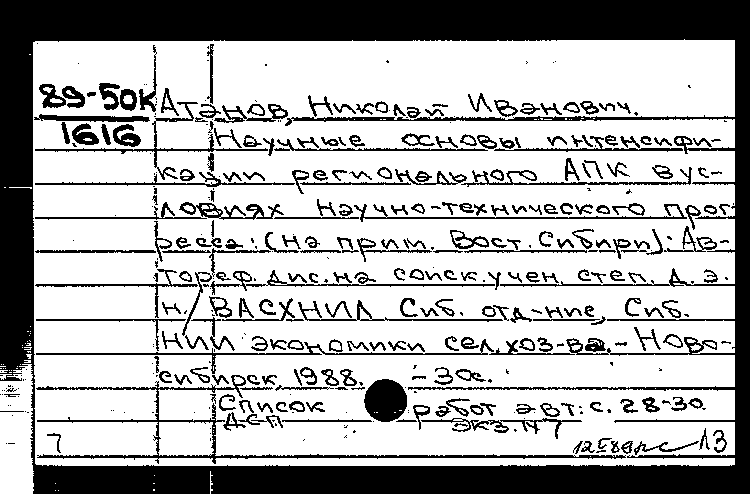 89-50К Атанов, Николай Иванович.
1616 Научные основы интенсифи-
кации регионального АПК в ус-
ловиях научно-технического прог-
ресса: (На прим. Вост. Сибири): Ав-
тореф. дис. на соиск. учен. степ. д. э.
н. / ВАСХНИЛ. Сиб. отд-ние, Сиб.
НИИ экономики сел. хоз-ва. - Ново-
сибирск, 1988. - 30с.
Список работ авт: с. 28-30.
ДСП экз. N 7
7 ЛЗ